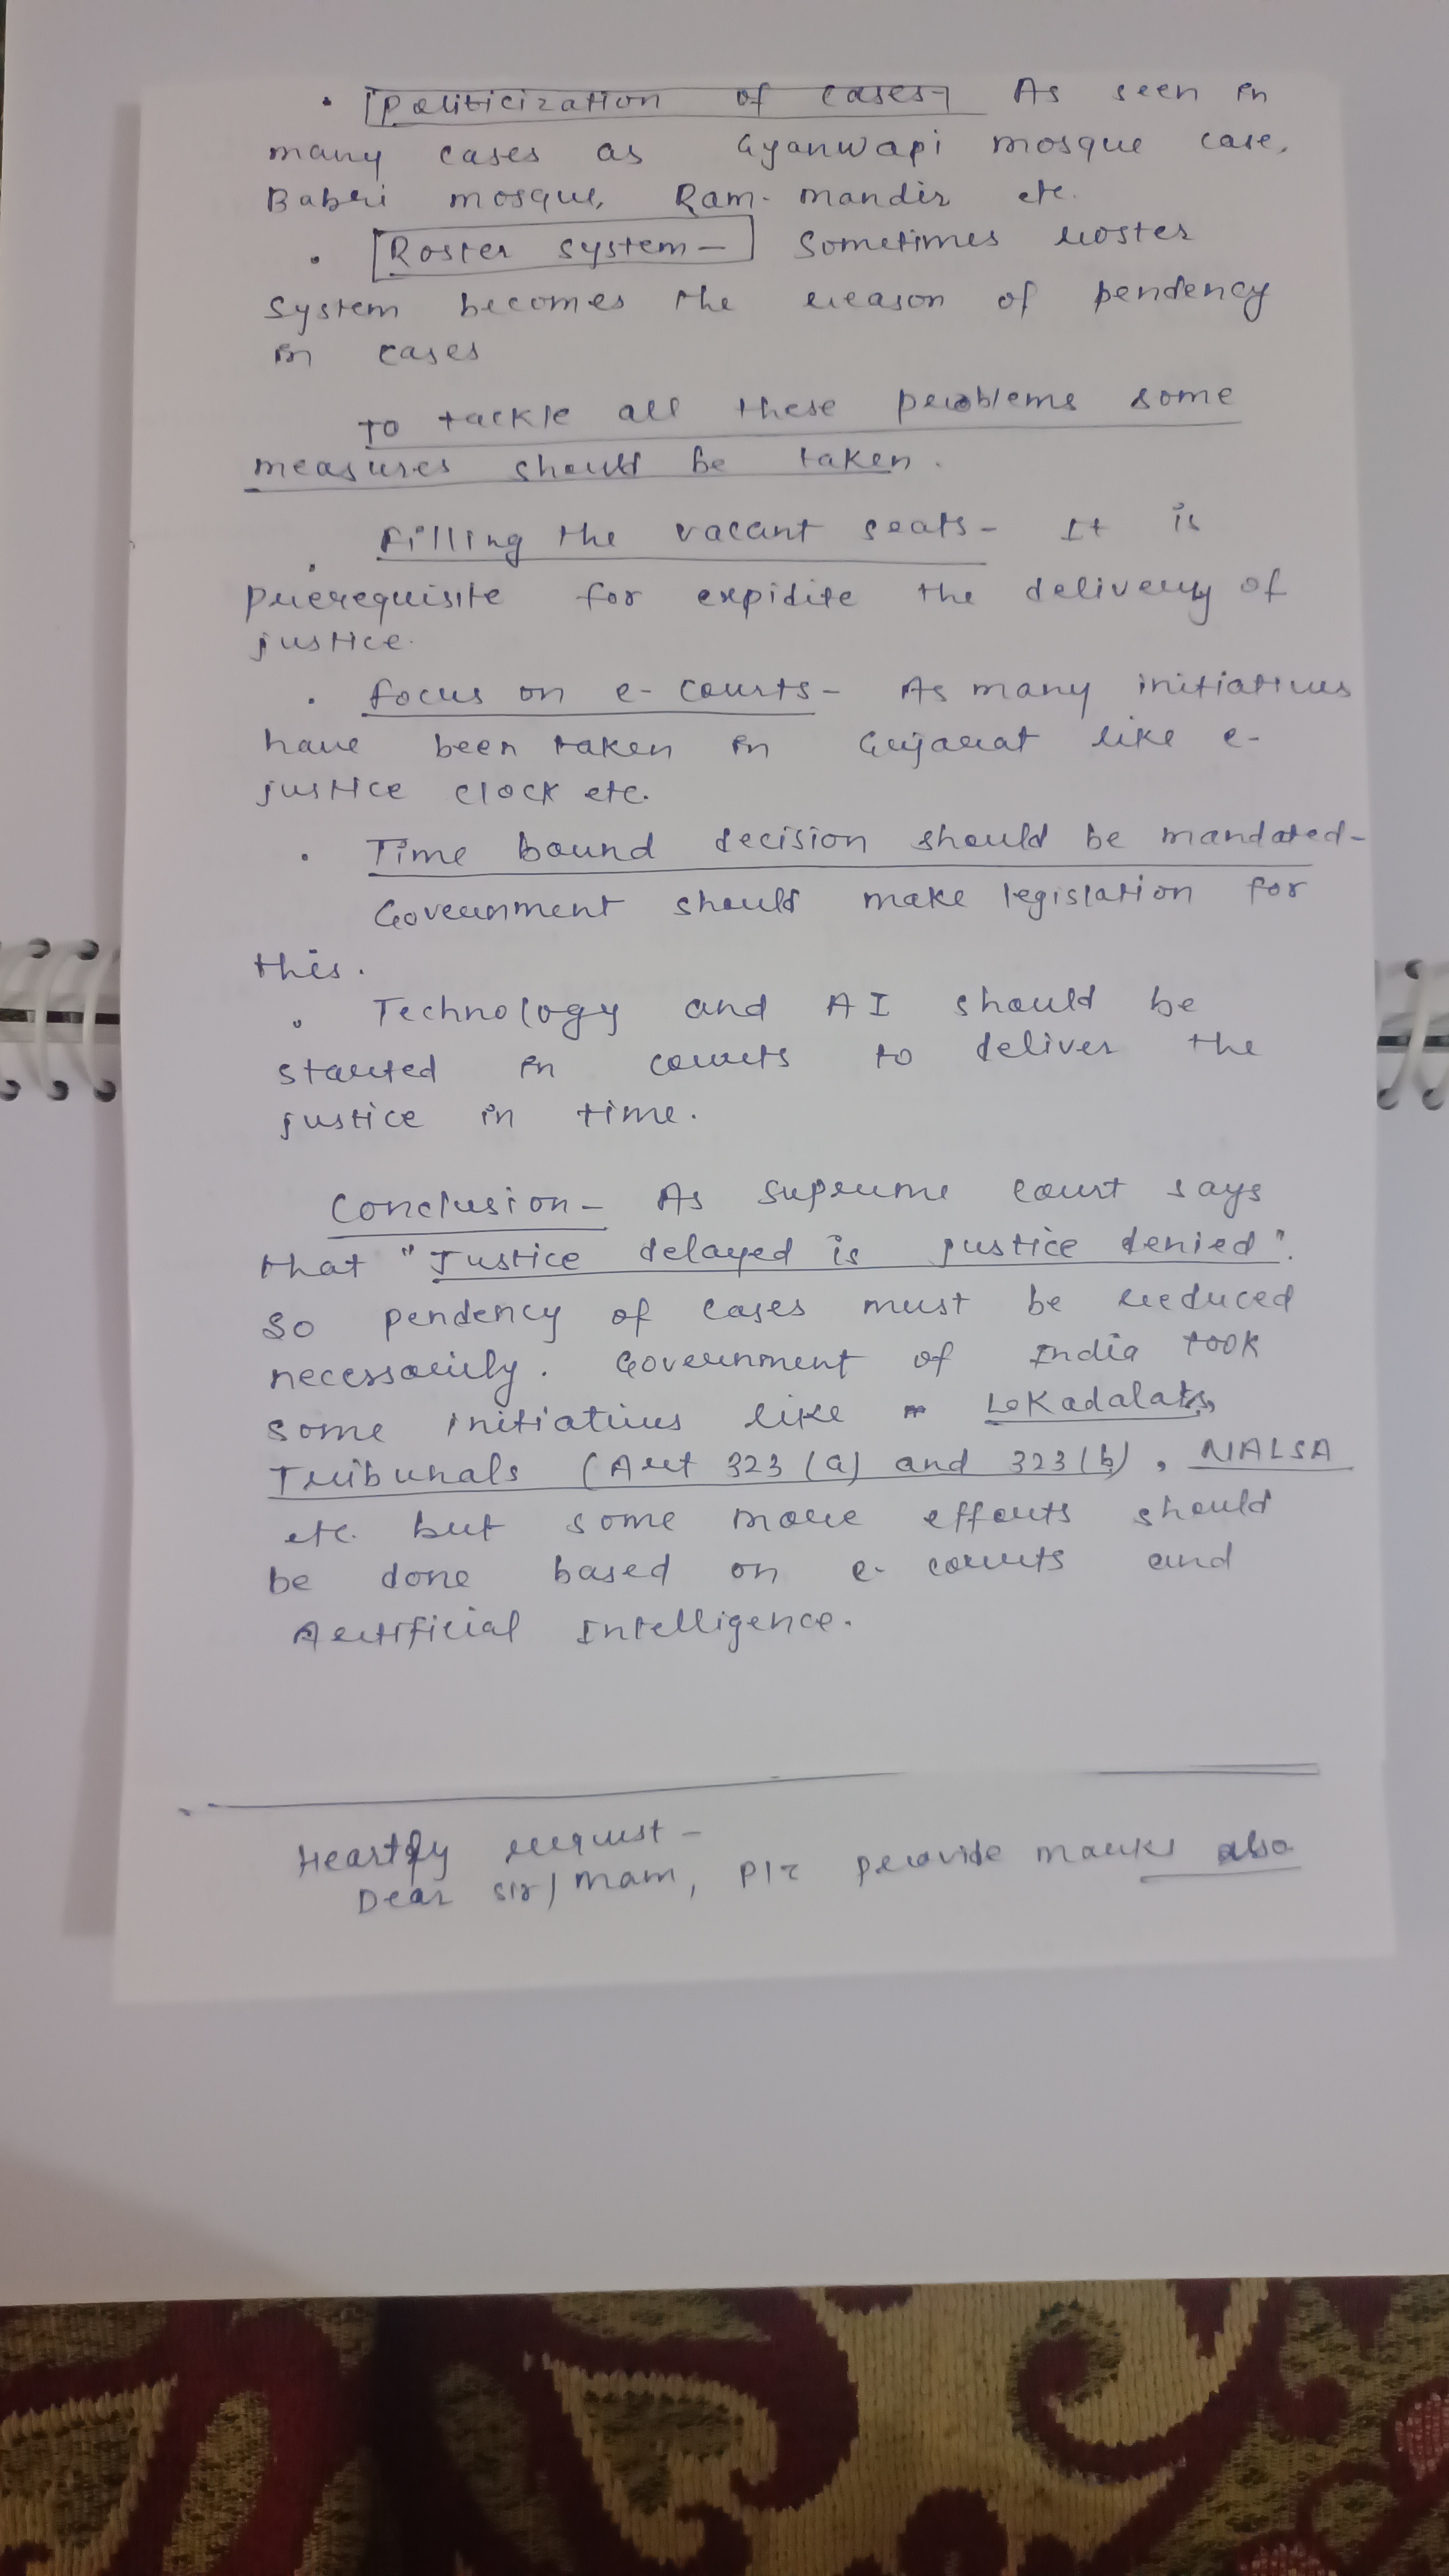 • Politicization of cases- As seen in
many cases as Gyanwapi mosque case,
Babri mosque, Ram- mandir etc.
• Roster system - Sometimes roster
system becomes the reason of pendency
in cases
To tackle all these problems some
measures should be taken.
• Filling the vacant seats - It is
prerequisite for expidite the delivery of
justice.
• focus on e- courts - As many initiatives
have been taken in Gujarat like e-
justice clock etc.
• Time bound decision should be mandated-
Government should make legislation for
this.
• Technology and AI should be
started in courts to deliver the
justice in time.
Conclusion - As supreme court says
that "Justice delayed is justice denied".
so pendency of cases must be reduced
necessarily. Government of India took
some initiatives like Lokadalats,
Tribunals (Art 323 (a) and 323(b), NALSA
etc. but some more efforts should
be done based on e- courts and
Artificial Intelligence.
Heartly request -
Dear sir/mam, plz provide marks also